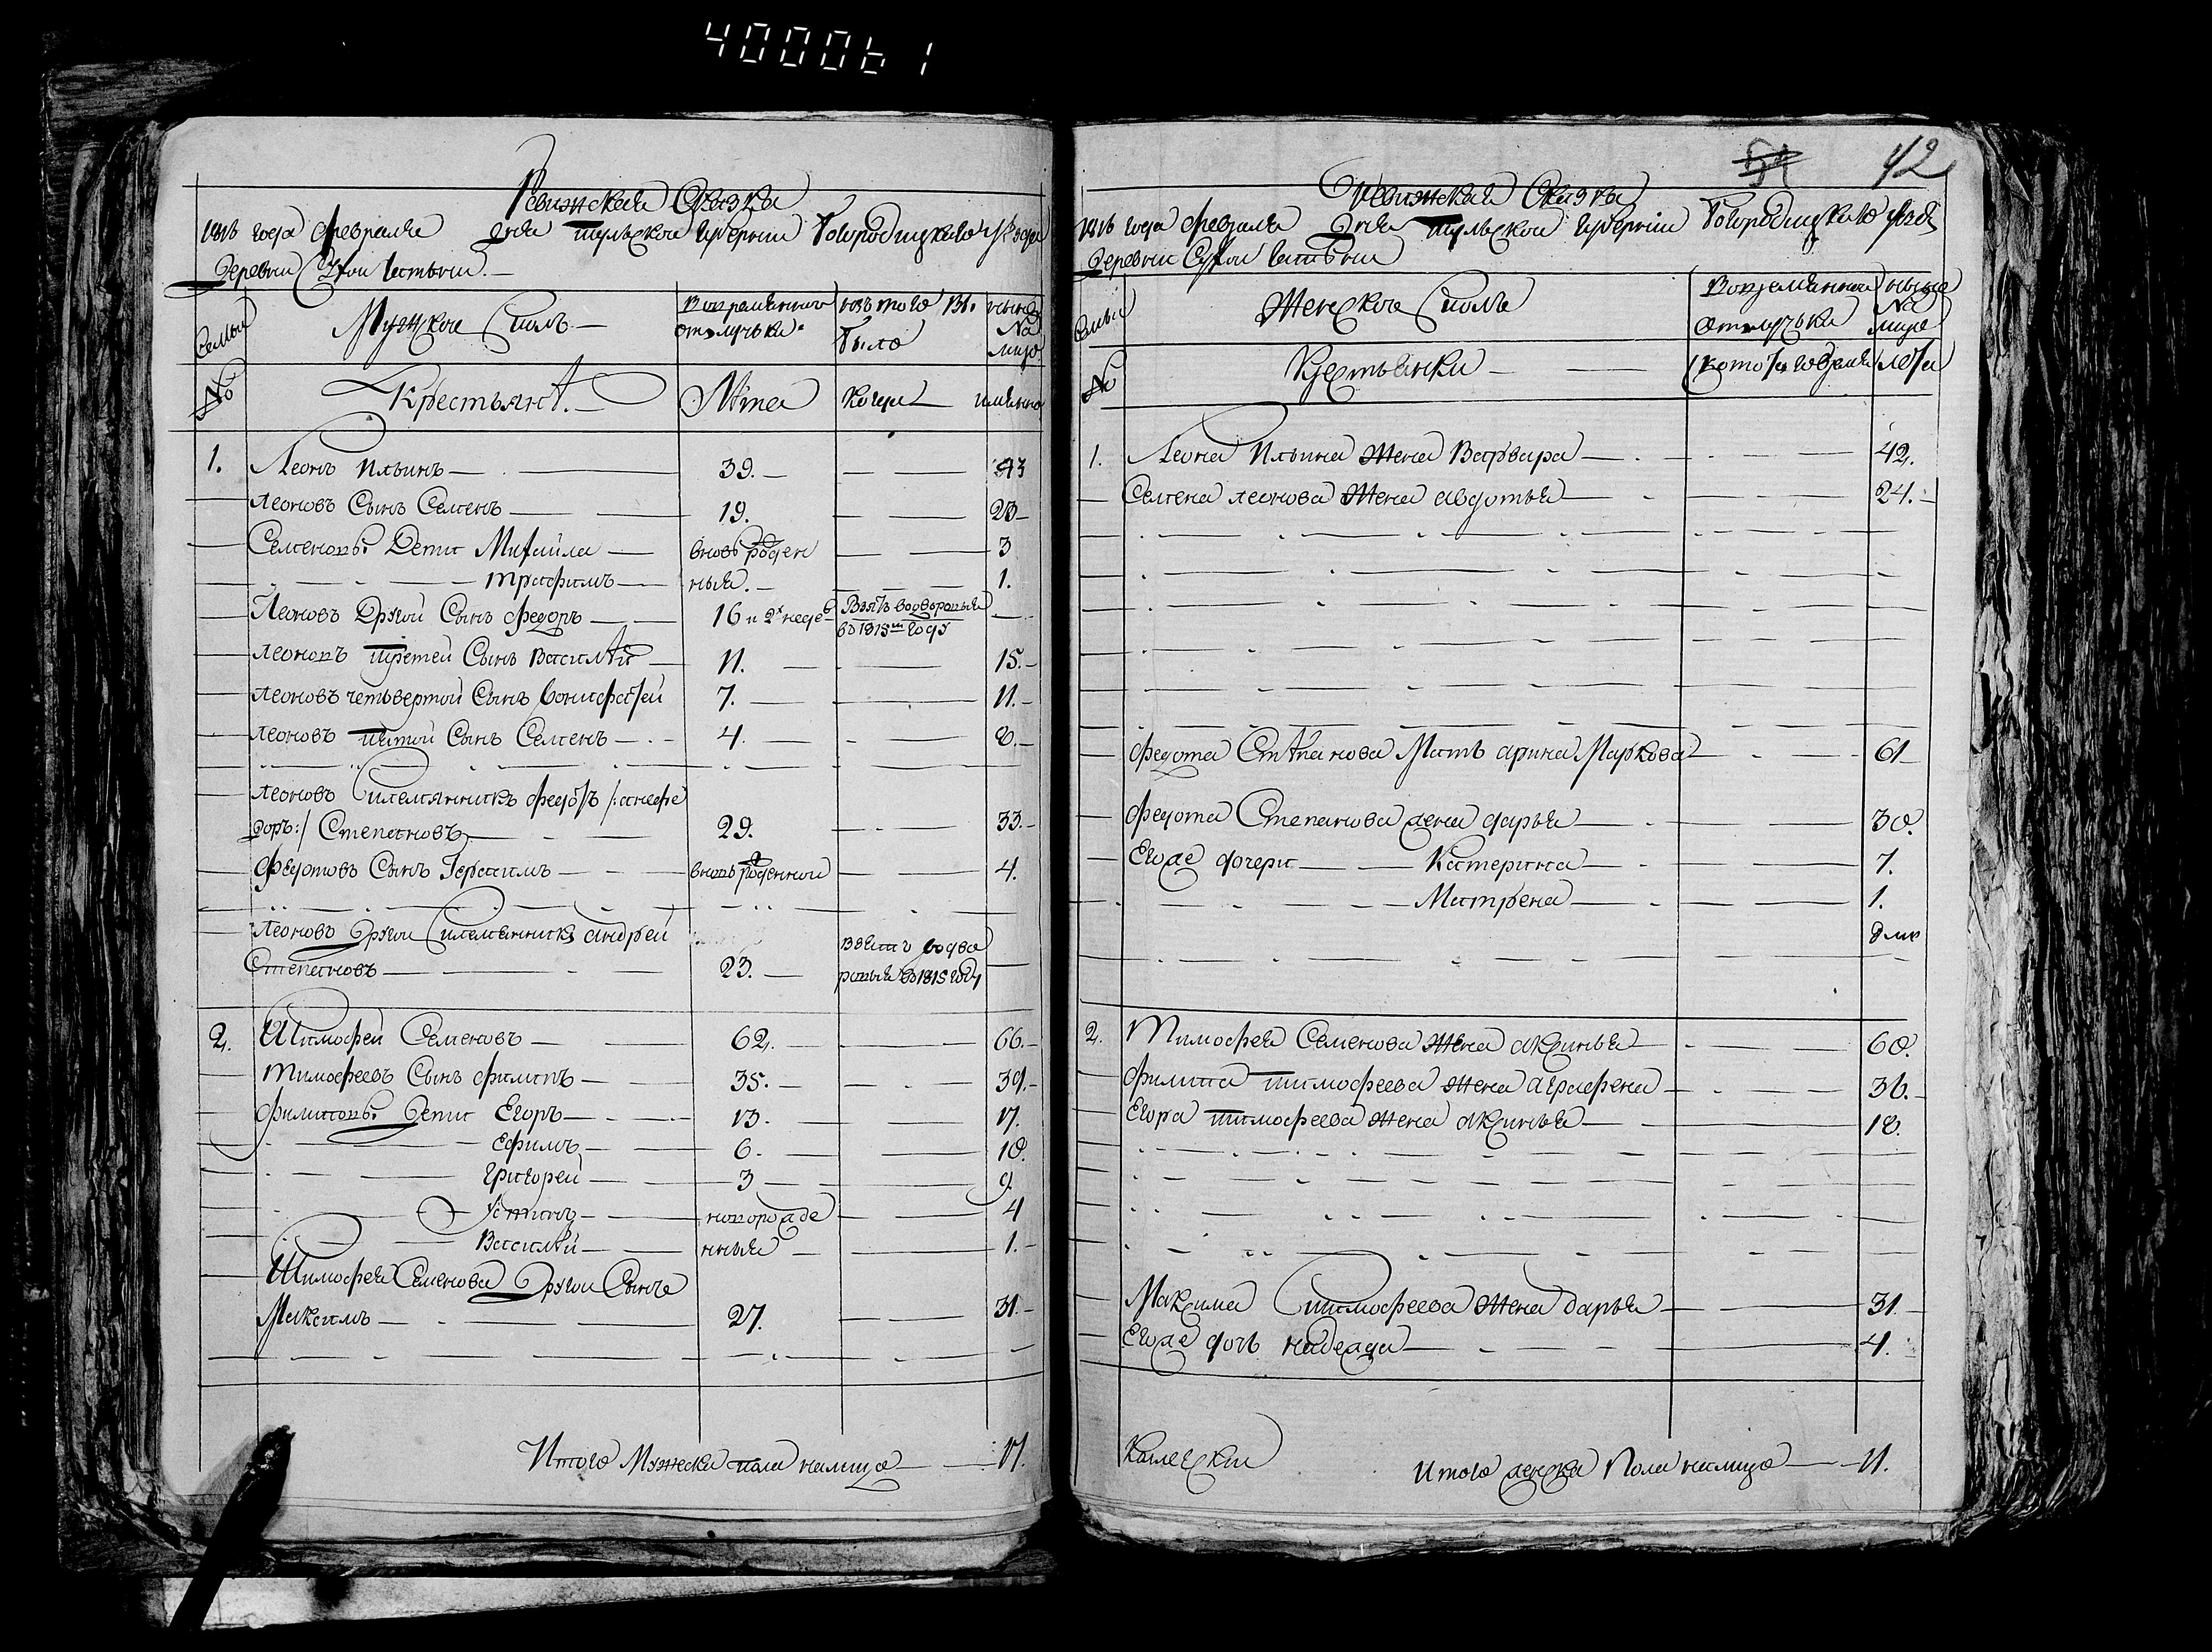 400061
Ревижская Сказка
1816 года февраля дня тульской губернии Богородицкаго уезда
Деревни Сухой
Семьи
Мужское полъ
Вопременно отлучьки
изъ того Вы было
ныне На лицо
№
Крестьянѣ
Лѣта
Когда
имянно
1. Леонъ Ильинъ 39. 43
Леоновъ Сынъ Семенъ 19. 23
Семеновы Дети Михайла вновь рожден 3
трафимъ ныя. 1.
Леоновъ Другой Сынъ федоръ 16 и 2х неде Взятъ
во 1813м году
Леоновъ третей Сынъ Василѣй 11. 15.
Леоновъ четьвертой Сынъ Вонифатей 7. 11.
Леоновъ пятой Сынъ Семенъ 4. 8.
Леоновъ племянникъ федотъ /: анефе
доръ :/ Степановъ 29. 33.
федотовъ Сынъ Герасимъ вновь рожденной 4.
Леоновъ другой племянникъ андрей взятъ водво
Степановъ 23. ропыя во 1815 году
2. Тимофей Семеновъ 62. 66.
Тимофеевъ Сынъ филипъ 35. 39.
филиповы дети Егоръ 13. 17.
Ефимъ 6. 10.
григорей 3 9.
Устинъ новорожде 4
Василѣй нныя 1.
Тимофея Семенова другой Сынъ
Максимъ 27. 31.
Итого Мужеска пола налицо 17.
51
42
Ревижская Сказка
1816 года февраля дня тульской губернии Богородицкаго уезда
Деревни Сухой
Семьи
Женское полъ
Вопременной отлучьки
ныне На лицо
№
Крестьянки
лета
1. Леона Ильина жена Варвара 42.
Семена леонова жена авдотья 24.
федота Стѣпанова Мать арина Маркова 61
федота Степанова жена дарья 30.
Егоже дочери Катерина 7.
Матрена 1.
2. Тимофея Семенова жена аксинья 60.
филипа тимофеева жена аграфена 36.
Егора тимофеева жена аксинья 18.
Максима тимофеева жена дарья 31.
Егоже дочь надежда 4.
Итого женска пола налицо 11.